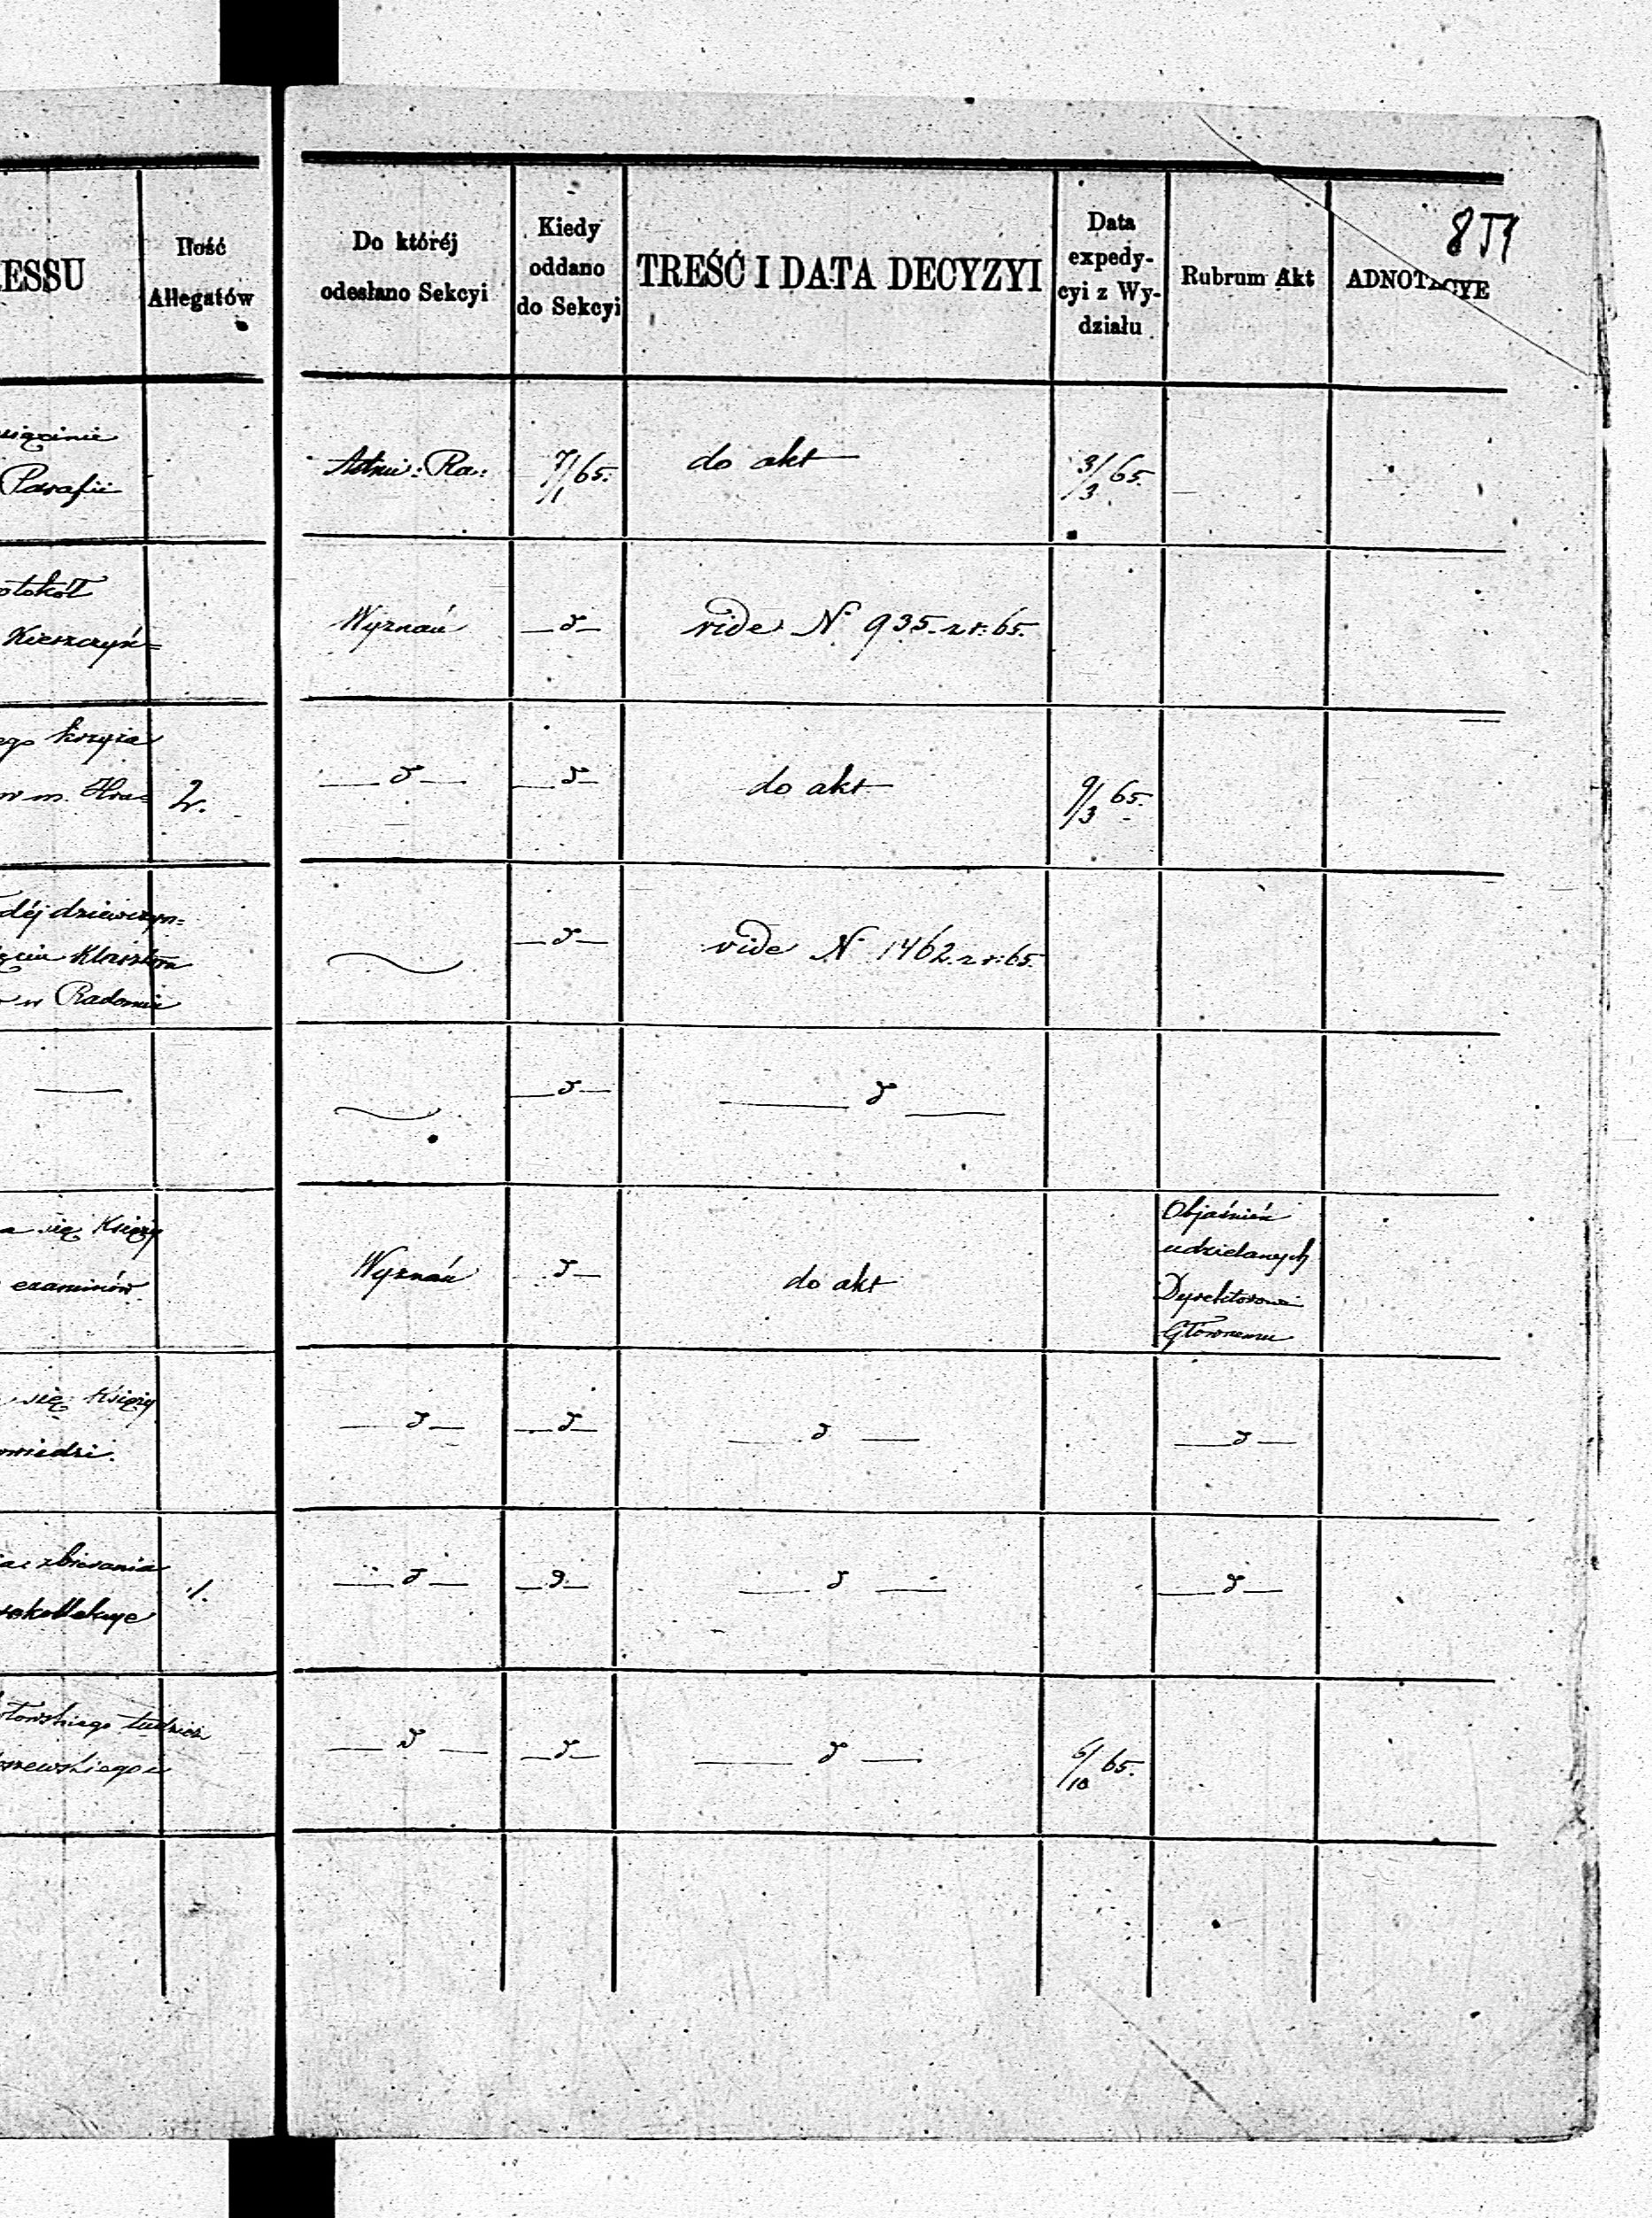 8
ESSU
Ilość
Allegatów
Do któréj
odesłano Sekcyi
Kiedy
oddano
do Sekcyi
TREŚĆ I DATA DECYZYI
Data
expedy-
cyi z Wy-
działu
Rubrum Akt
ADNOTACYE
Parafii
Ra:
7/1 65.
do akt
3/3 65.
otokół
Kieszczyń=
Wyznań
— d —
vide N 935. z r: 65.
ego krzyża
w m. Hra=
2.
— d —
— d —
do akt
9/3 65.
déj dziewczyn=
ęcia Klasztora
w Radomiu
— d —
vide N 1462. z r: 65.
— d —
— d —
a się Księży
examinów
Wyznań
— d —
do akt
Objaśnień
udzielanych
Dyrektorowi
Głównemu
się Księży
owiedzi.
— d —
— d —
— d —
— d —
zbierania
1.
— d —
— d —
— d —
— d —
towskiego tudzież
szewskiego
— d —
— d —
— d —
6/10 65.